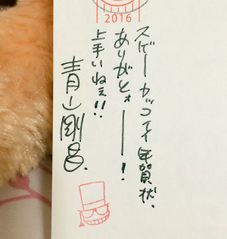 2016
スゲー カッコイイ 年賀状、
ありがとォーー！
上手いねぇ!!
青山剛昌.